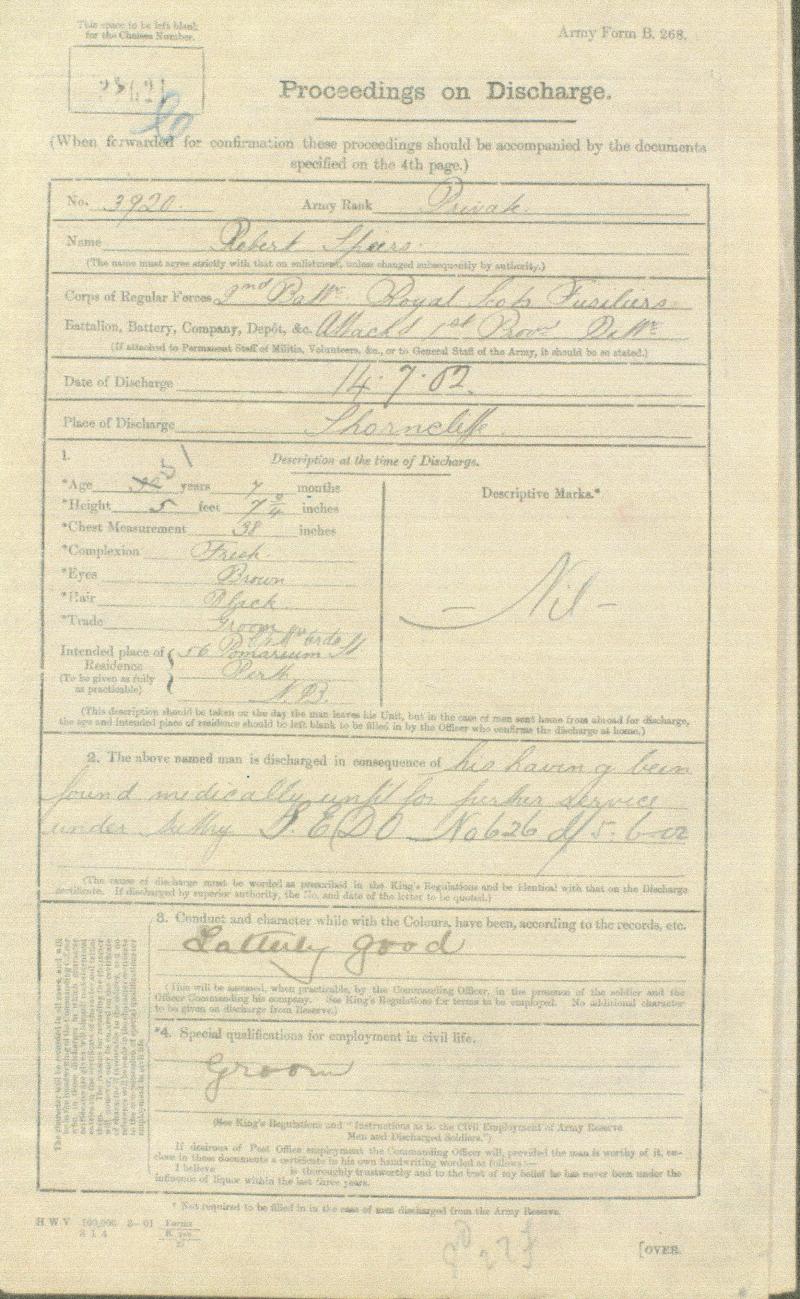 This space to be left blank
for the Chelsea Number.
Army Form B. 268.
Proceedings on Discharge.
(When forwarded for confirmation these proceedings should be accompanied by the documents
specified on the 4th page.)
No. 3920 Army Rank Private
Name Robert Spiers
(The name must agree strictly with that on enlistment, unless changed subsequently by authority.)
Corps of Regular Forces 2nd Battn Royal Scots Fusiliers
Battalion, Battery, Company, Depôt, &c. Attachd 1st Provl Battn
(If attached to Permanent Staff of Militia, Volunteers, &c., or to General Staff of the Army, it should be so stated.)
Date of Discharge 14.7.02.
Place of Discharge Shorncliffe
1.
Description at the time of Discharge.
*Age 31 years 7 months
*Height 5 feet 7 2/4 inches
*Chest Measurement 38 inches
*Complexion Fresh
*Eyes Brown
*Hair Black
*Trade Groom
Intended place of Residence 56 Pomarium St
(To be given as fully as practicable) Perth
N.B.
Descriptive Marks.*
- Nil -
(This description should be taken on the day the man leaves his Unit, but in the case of men sent home from abroad for discharge,
the age and intended place of residence should be left blank to be filled in by the Officer who confirms the discharge at home.)
2. The above named man is discharged in consequence of his having been
found medically unfit for further service
under No 626 d/ 5.6.02
(The cause of discharge must be worded as prescribed in the King's Regulations and be identical with that on the Discharge
certificate. If discharged by superior authority, the No. and date of the letter to be quoted.)
3. Conduct and character while with the Colours, have been, according to the records, etc.
Latterly good
(This will be assessed, when practicable, by the Commanding Officer, in the presence of the soldier and the
Officer Commanding his company. See King's Regulations for terms to be employed. No additional character
to be given on discharge from Reserve.)
*4. Special qualifications for employment in civil life.
Groom
(See King's Regulations and "Instructions as to the Civil Employment of Army Reserve
Men and Discharged Soldiers.")
If desirous of Post Office employment the Commanding Officer will, provided the man is worthy of it, en-
close in these documents a certificate in his own handwriting worded as follows:—
I believe is thoroughly trustworthy and to the best of my belief he has never been under the
influence of liquor within the last three years.
* Not required to be filled in in the case of men discharged from the Army Reserve.
H W V 100,000 2—01 Forms
[OVER.